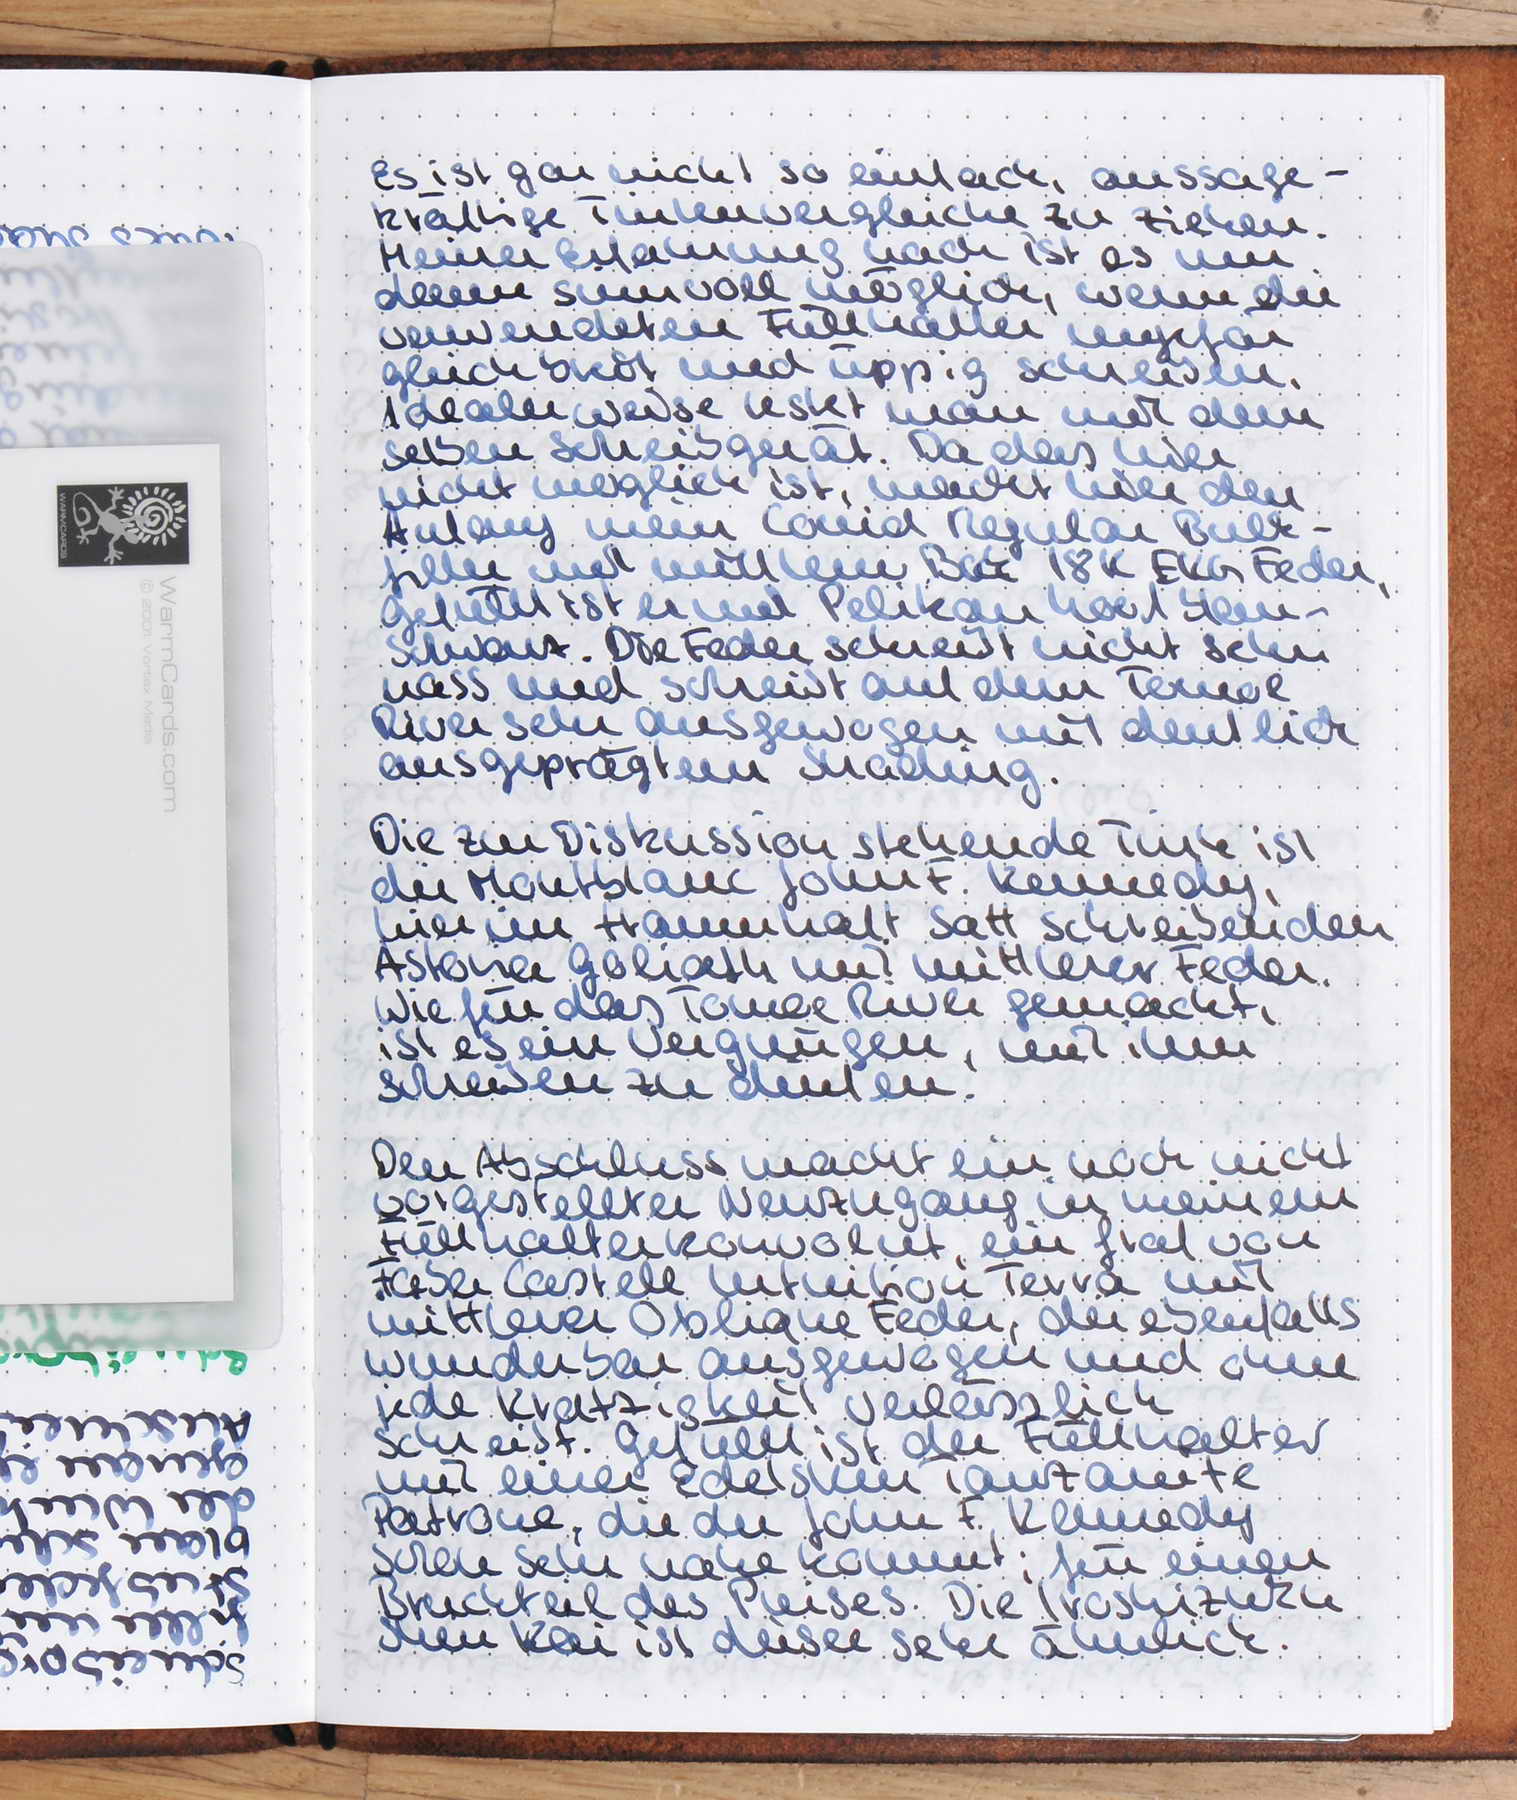 Es ist gar nicht so einfach, aussage-
kräftige Tintenvergleiche zu ziehen.
Meiner Erfahrung nach ist es nur
dann sinnvoll möglich, wenn die
verwendeten Füllhalter ungefär
gleich breit und üppig schreiben.
Idealerweise testet man mit dem
selben Schreibgerät. Da das hier
nicht möglich ist, macht hier den
Anfang mein Conid Regular Bulk-
filler mit mittlerer 18K Feder,
gefüllt ist er mit Pelikan
schwarz. Die Feder schreibt nicht sehr
nass und schreibt auf dem Tomoe
River sehr ausgewogen mit deutlich
ausgeprägtem Shading.
Die zur Diskussion stehende Tinte ist
die Montblanc John F. Kennedy,
hier im traumhaft satt schreibenden
Astoria Goliath mit mittlerer Feder.
Wie für das Tomoe River gemacht,
ist es ein Vergnügen, mit ihm
schreiben zu dürfen.
Den Abschluss macht ein noch nicht
vorgestellter Neuzugang in meinem
Füllhalterkonvolut, ein Graf von
Faber Castell Intuition Terra mit
mittlerer Oblique Feder, der ebenfalls
wunderbar ausgewogen und ohne
jede Kratzigkeit verlässlich
schreibt. Gefüllt ist der Füllhalter
mit einer Edelstein Tanzanite
Patrone, die der John F. Kennedy
schon sehr nahe kommt; für einen
Bruchteil des Preises. Die Iroshizuku
shin kai ist dieser sehr ähnlich.
WarmCards.com
© 2001 Vortex Media
WARMCARDS